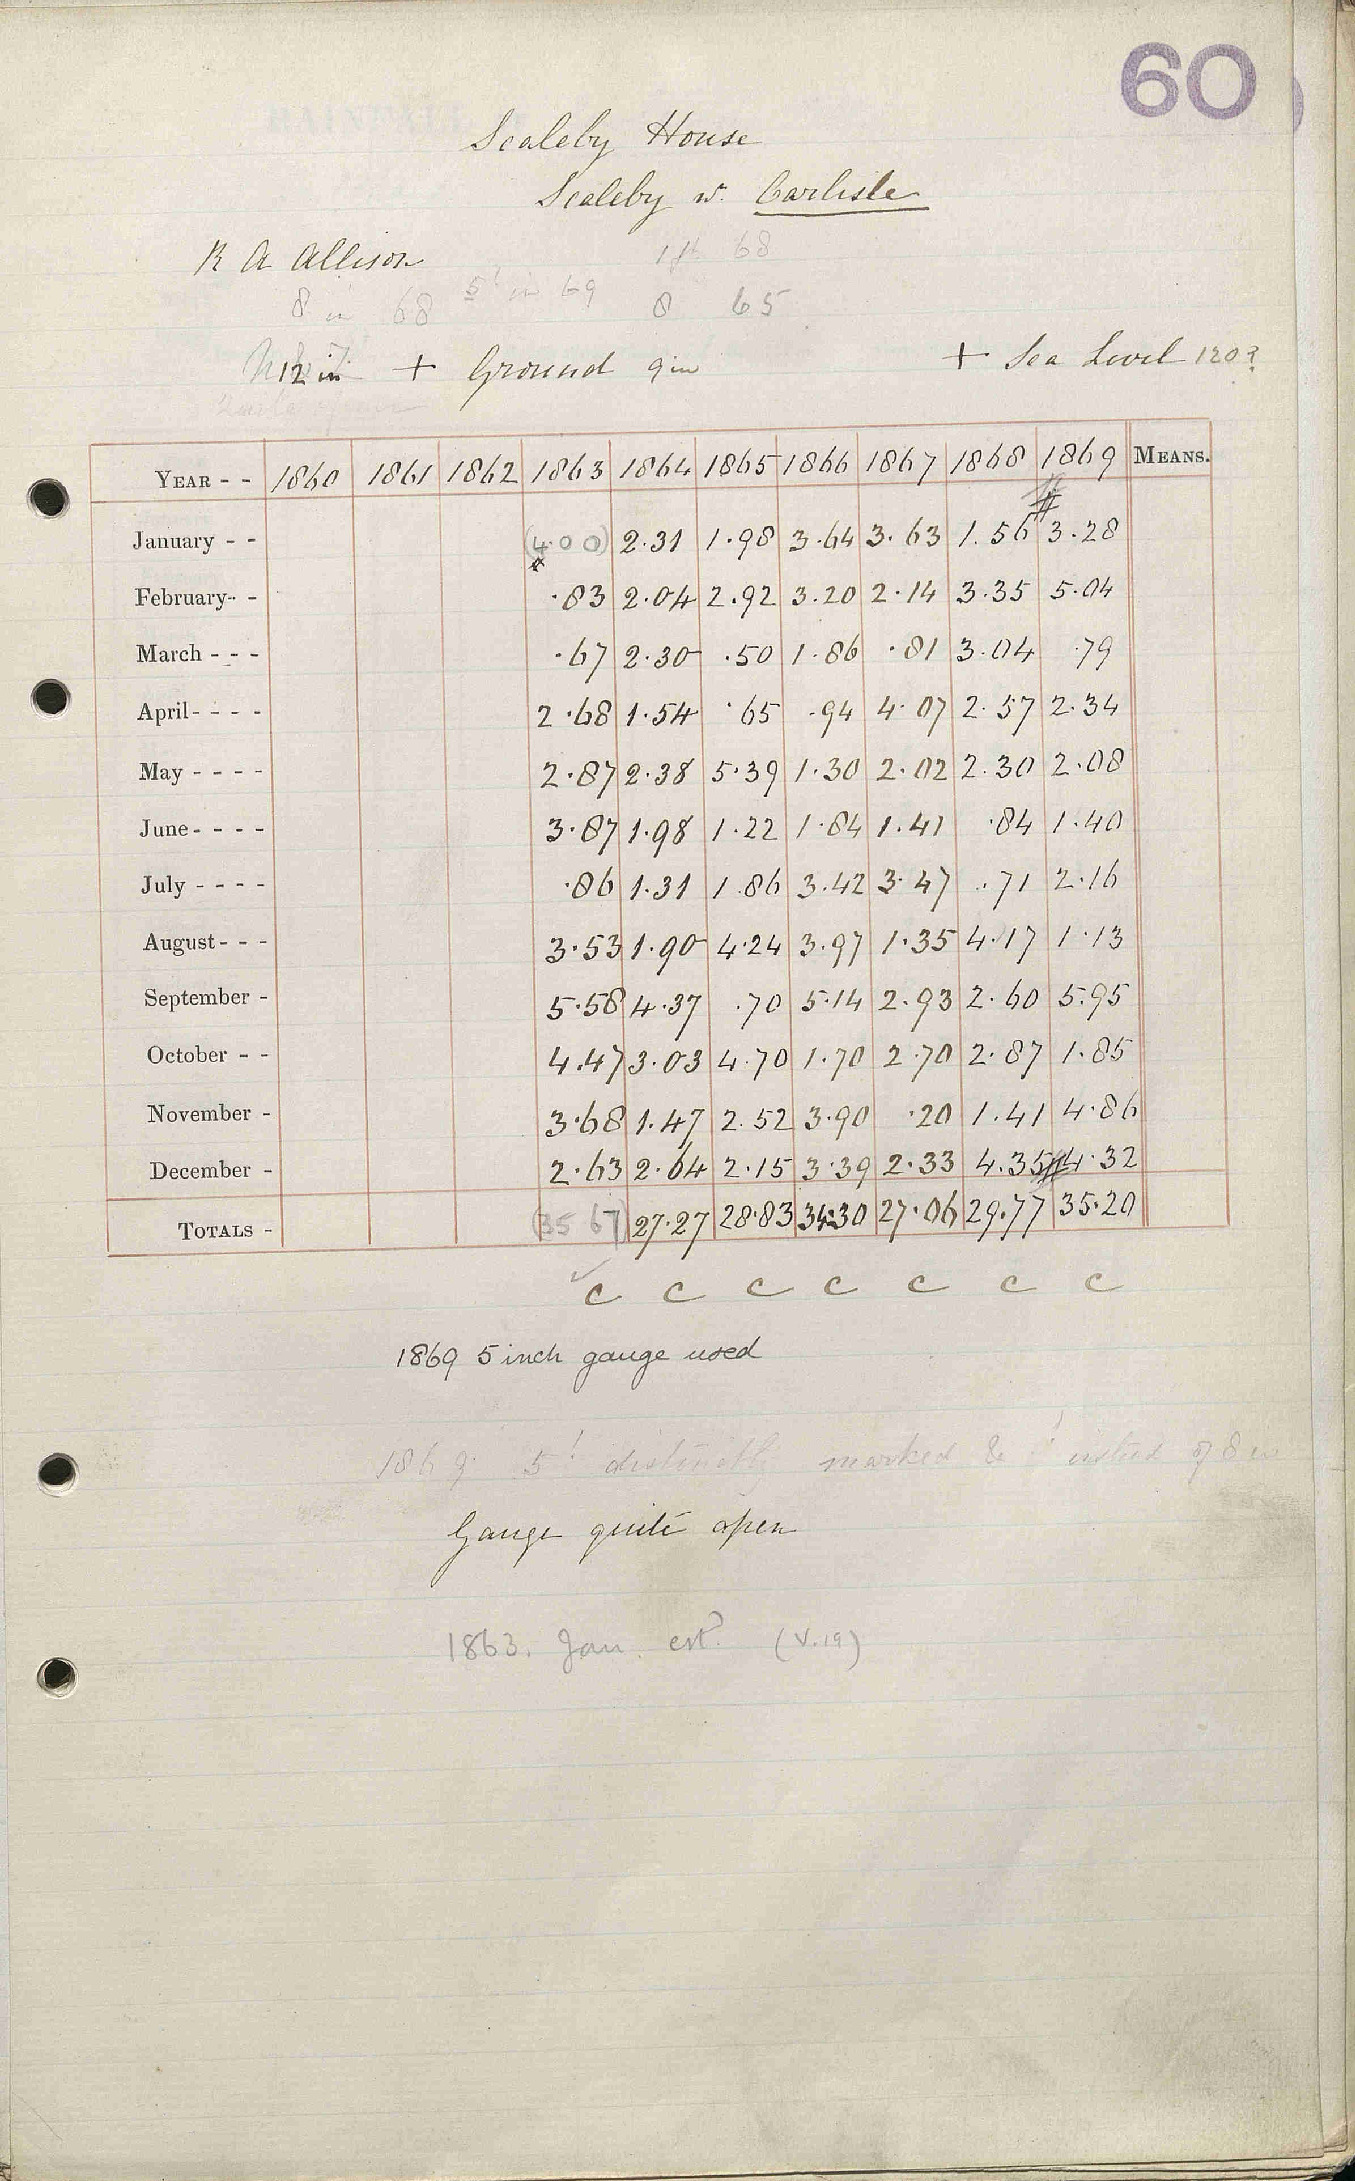 60
Scaleby House
Scaleby nr. Carlisle
R A Allison
1 ft 68
8 in 68 5' in 69 8 65
12 in + Ground 9 in + Sea Level 120?
YEAR - - 1860 1861 1862 1863 1864 1865 1866 1867 1868 1869 MEANS.
January - - (4.00) 2.31 1.98 3.64 3.63 1.56 3.28
February - - .83 2.04 2.92 3.20 2.14 3.35 5.04
March - - - .67 2.30 .50 1.86 .81 3.04 .79
April - - - - 2.68 1.54 .65 .94 4.07 2.57 2.34
May - - - - 2.87 2.38 5.39 1.30 2.02 2.30 2.08
June - - - - 3.87 1.98 1.22 1.84 1.41 .84 1.40
July - - - - .86 1.31 1.86 3.42 3.47 .71 2.16
August - - - 3.53 1.90 4.24 3.97 1.35 4.17 1.13
September - 5.58 4.37 .70 5.14 2.93 2.60 5.95
October - - 4.47 3.03 4.70 1.70 2.70 2.87 1.85
November - 3.68 1.47 2.52 3.90 .20 1.41 4.86
December - 2.63 2.64 2.15 3.39 2.33 4.35 4.32
TOTALS - (35 67) 27.27 28.83 34.30 27.06 29.77 35.20
c c c c c c c
1869 5 inch gauge used
1869 5' distinctly marked & ' instead of 8 in
Gauge quite open
1863. Jan. est. (V.19)